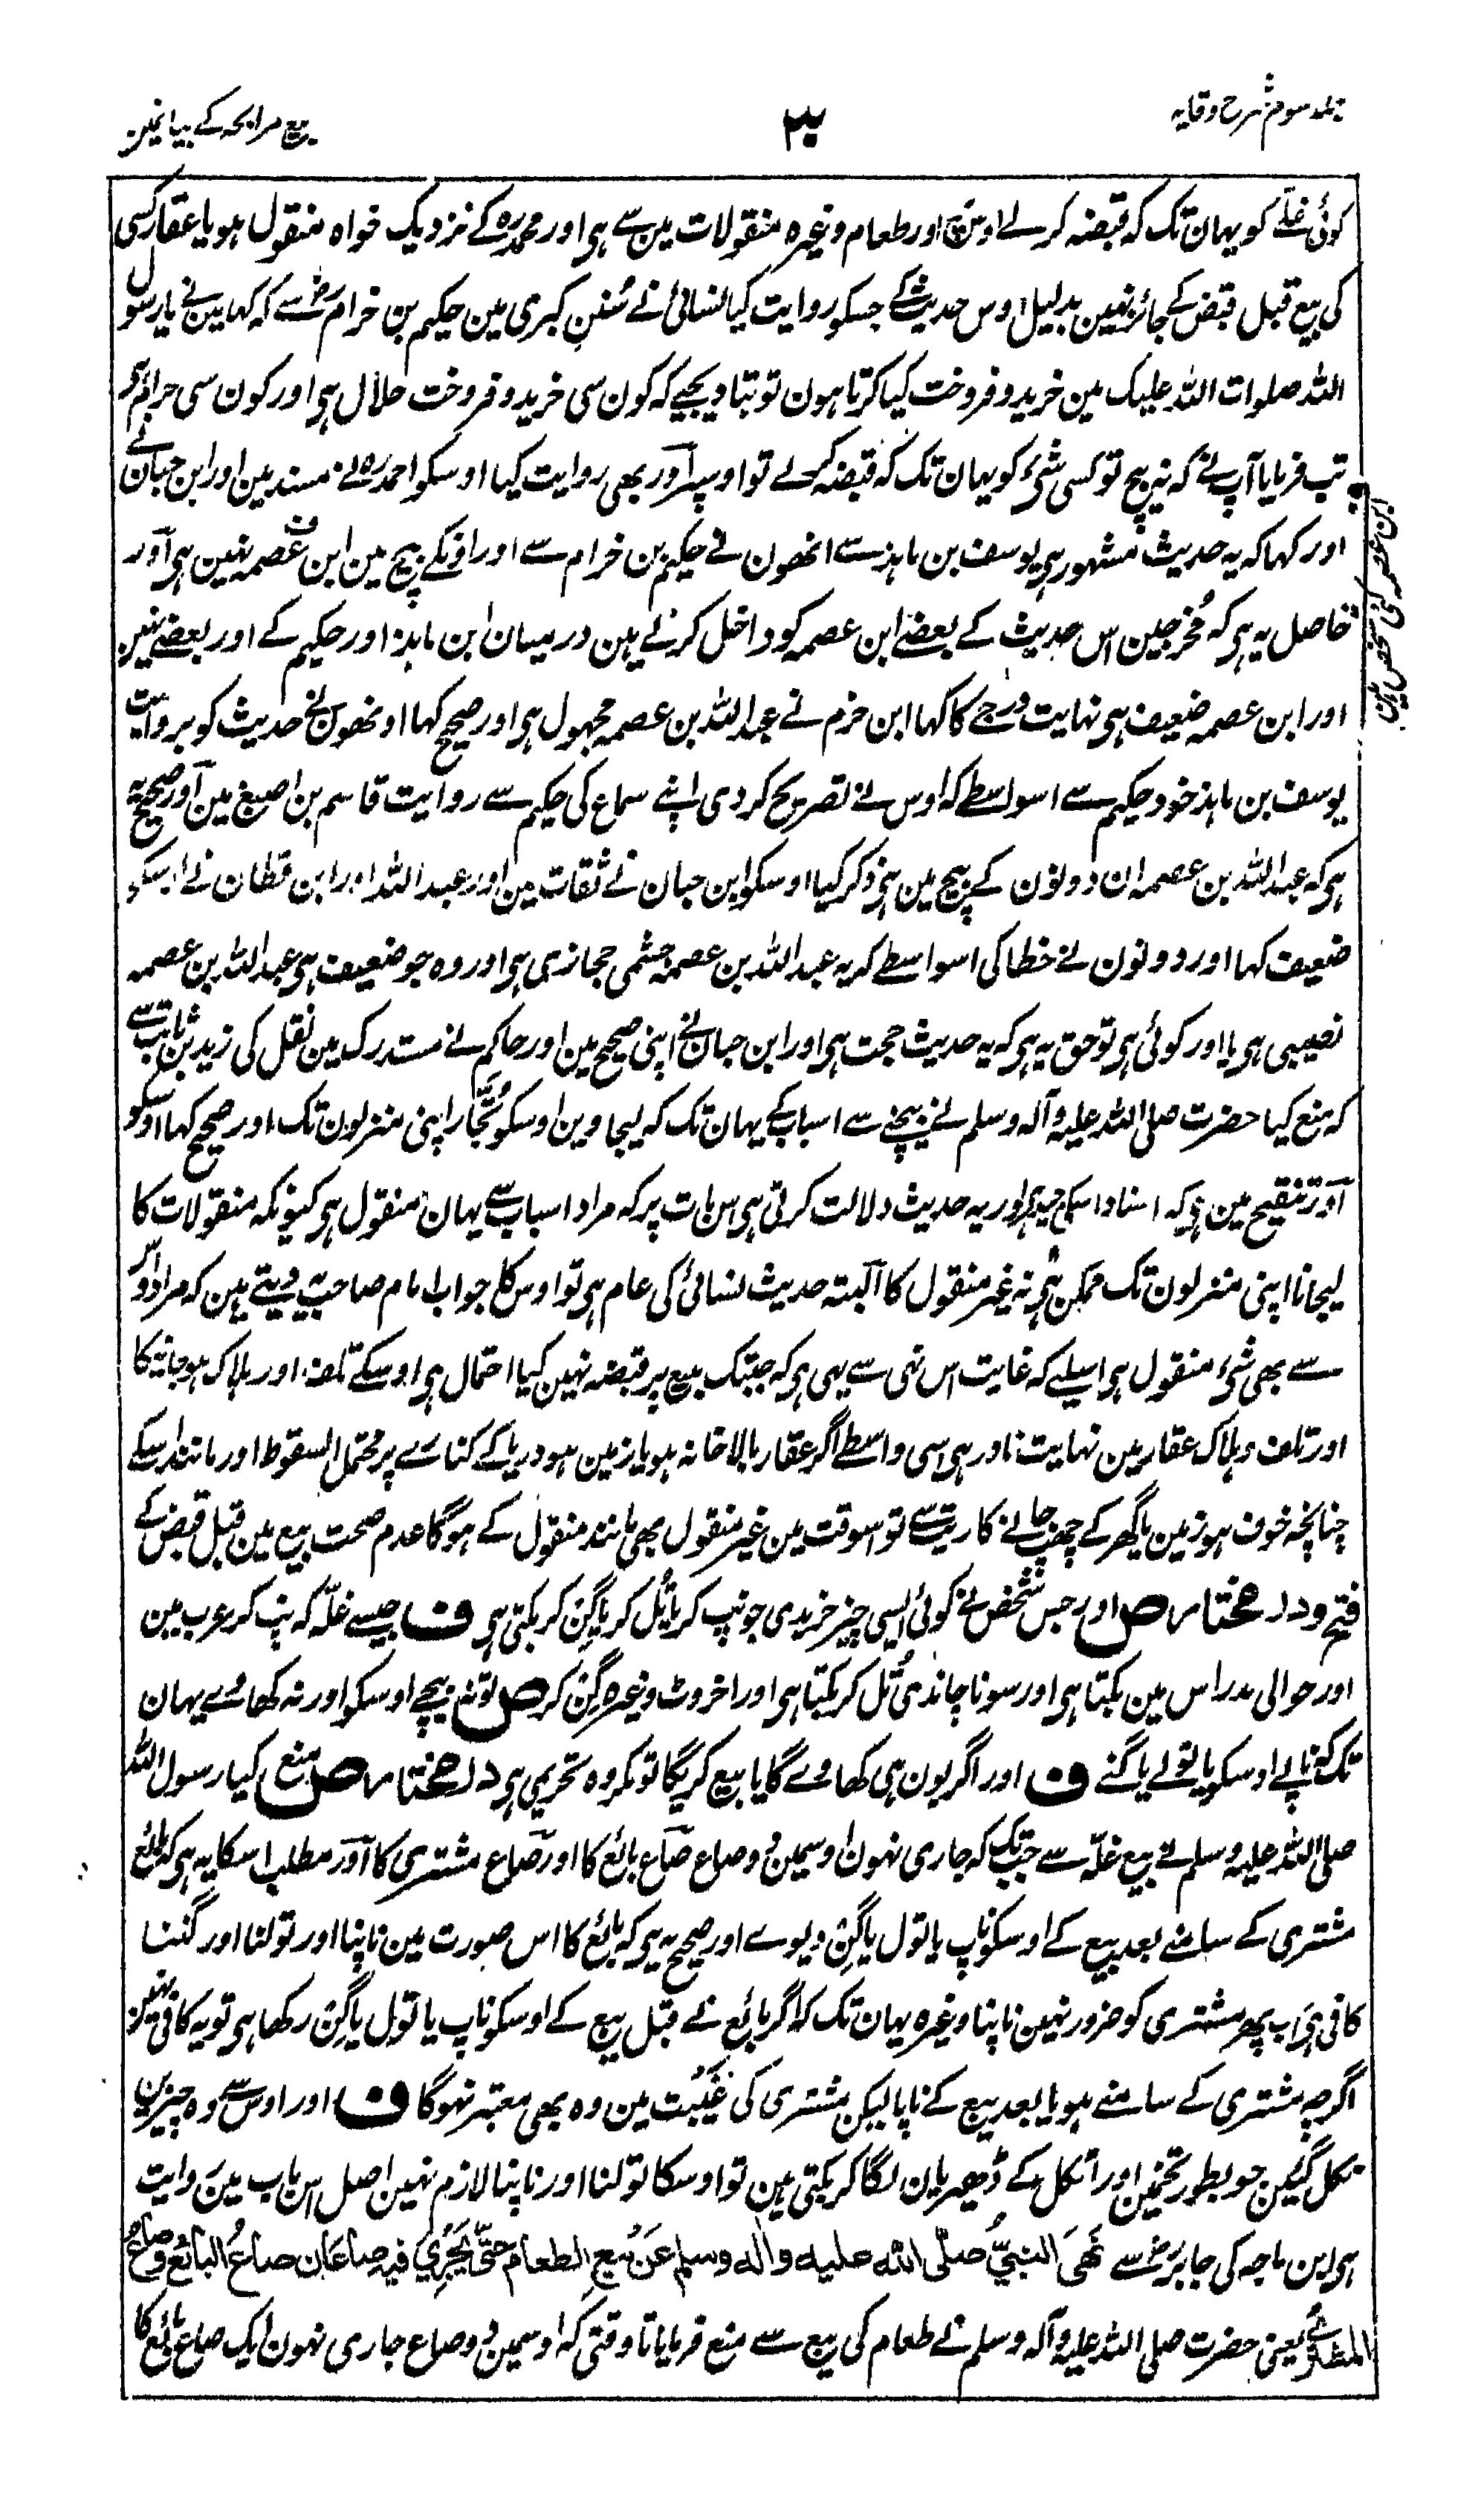 جلد سوم شرح وقایہ
بیع مرابحہ کے بیانمین
کوئی غلّے کو یہان تک کہ قبضہ کر لے اور طعام وغیرہ منقولات مین سے ہی اور محمدرہ کے نزدیک خواہ منقول ہو یا عقار کسی
کی بیع قبل قبض کے جائز نہین بدلیل اوس حدیث کے جسکو روایت کیا نسائی نے سُنن کبری مین حکیم بن خرام رض سے کہ کہا مین نے یا رسول
اللہ صلوات اللہ علیک مین خرید و فروخت کیا کرتا ہون تو بتا دیجیے کہ کون سی خرید و فروخت حلال ہی اور کون سی حرام
تب فرمایا آپ نے کہ نہ بیچ تو کسی شَیٔ کو یہان تک کہ قبضہ کرلے تو اوسپر اور بھی روایت کیا اوسکو احمدرہ نے مسند مین اور ابن حبان نے
اور کہا کہ یہ حدیث مشہور ہی یوسف بن ماہذ سے انھون نے حکیم بن خرام سے اور اونکے بیچ مین ابن عصمہ نہین ہی اور
حاصل یہ ہی کہ مُخرجین اس حدیث کے بعضے ابن عصمہ کو داخل کرتے ہین درمیان ابن ماہذ اور حکیم کے اور بعضے نہین
اور ابن عصمہ ضعیف ہی نہایت درجے کا کہا ابن حزم نے عبداللہ بن عصمہ مجہول ہی اور صحیح کہا اونھون نے حدیث کو بروایت
یوسف بن ماہذ خود حکیم سے اسواسطے کہ اوس نے تصریح کر دی اپنے سماع کی حکیم سے روایت قاسم بن اصبغ مین اور صحیح یہ
ہی کہ عبداللہ بن عصمہ ان دونون کے بیچ مین ہی ذکر کیا اوسکو ابن حبان نے ثقات مین اور عبداللہ اور ابن قطان نے اوسکو
ضعیف کہا اور دونون نے خطا کی اسواسطے کہ یہ عبداللہ بن عصمہ جشمی حجازی ہی اور وہ جو ضعیف ہی عبداللہ بن عصمہ
نصیبی ہی یا اور کوئی ہی تو حق یہ ہی کہ یہ حدیث حجت ہی اور ابن حبان نے اپنی صحیح مین اور حاکم نے مستدرک مین نقل کی زید بن ثابت سے
کہ منع کیا حضرت صلی اللہ علیہ وآلہ وسلم نے بیچنے سے اسباب کے یہان تک کہ لیجاوین اوسکو تُجّار اپنی منزلون تک اور صحیح کہا اوسکو
اور تنقیح مین ہی کہ اسناد اسکی جید ہی اور یہ حدیث دلالت کرتی ہی اس بات پر کہ مراد اسباب سے یہان منقول ہی کیونکہ منقولات کا
لیجانا اپنی منزلون تک ممکن ہی نہ غیر منقول کا البتہ حدیث نسائی کی عام ہی تو اوس کا جواب امام صاحب یہ دیتے ہین کہ مراد اوس
سے بھی شَیٔ منقول ہی اسلیے کہ غایت اس نہی سے یہی ہی کہ جبتک مبیع پر قبضہ نہین کیا احتمال ہی اوسکے تلف اور ہلاک ہو جانیکا
اور تلف و ہلاک عقار مین نہایت نادر ہی اسی واسطے اگر عقار بالاخانہ ہو یا زمین ہو دریا کے کنارے پر محتمل السقوط اور مانند اسکے
چنانچہ خوف ہو زمین یا گھر کے چھپ جانے کا ریت سے تو اسوقت مین غیر منقول بھی مانند منقول کے ہوگا عدم صحت بیع مین قبل قبض کے
فتح و درمختار ص اور جس شخص نے کوئی ایسی چیز خریدی جو نپ کر یا تُل کر یا گِن کر بکتی ہی ف جیسے غلّہ کہ نپ کر عرب مین
اور حوالی مدراس مین بکتا ہی اور سونا چاندی تُل کر بکتا ہی اور اخروٹ وغیرہ گن کر ص تو نہ بیچے اوسکو اور نہ کھائے یہان
تک کہ ناپے اوسکو یا تولے یا گنے ف اور اگر یون ہی کھاوے گا یا بیع کریگا تو مکروہ تحریمی ہی درمختار ص منع کیا رسول اللہ
صلی اللہ علیہ وسلم نے بیع غلّہ سے جبتک کہ جاری نہون اوسمین دو صاع صاع بائع کا اور صاع مشتری کا اور مطلب اسکا یہ ہی کہ بائع
مشتری کے سامنے بعد بیع کے اوسکو ناپ یا تول یا گن دیوے اور صحیح یہ ہی کہ بائع کا اس صورت مین ناپنا اور تولنا اور گننا
کافی ہی اب پھر مشتری کو ضرور نہین ناپنا وغیرہ یہان تک کہ اگر بائع نے قبل بیع کے اوسکو ناپ یا تول یا گن رکھا ہی تو یہ کافی نہین
اگرچہ مشتری کے سامنے ہو یا بعد بیع کے ناپا لیکن مشتری کی غَیبت مین وہ بھی معتبر نہوگا ف اور اوس سے وہ چیزین
نکل گئین جو بطور تخمین اور اٹکل کے ڈھیریان لگا کر بکتی ہین تو اوسکا تولنا اور ناپنا لازم نہین اصل اس باب مین روایت
ہی ابن ماجہ کی جابر رض سے نَھَی النبیُّ صلّی اللہ علیہ واٰلہ وسلم عَنْ بَیعِ الطعام حتّی یَجْرِیَ فیہ صاعَان صاعُ البائع وصاعُ
المشتری یعنی حضرت صلی اللہ علیہ وآلہ وسلم نے طعام کی بیع سے منع فرمایا تا وقتی کہ اوسمین دو صاع جاری نہون ایک صاع بائع کا